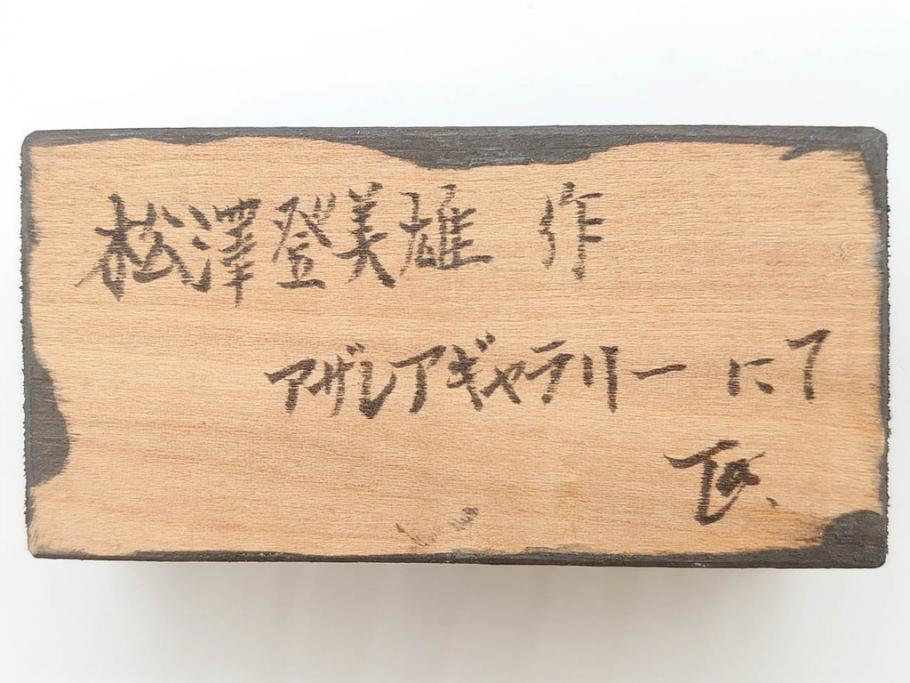 松澤登美雄 作
アザレアギャラリー にて